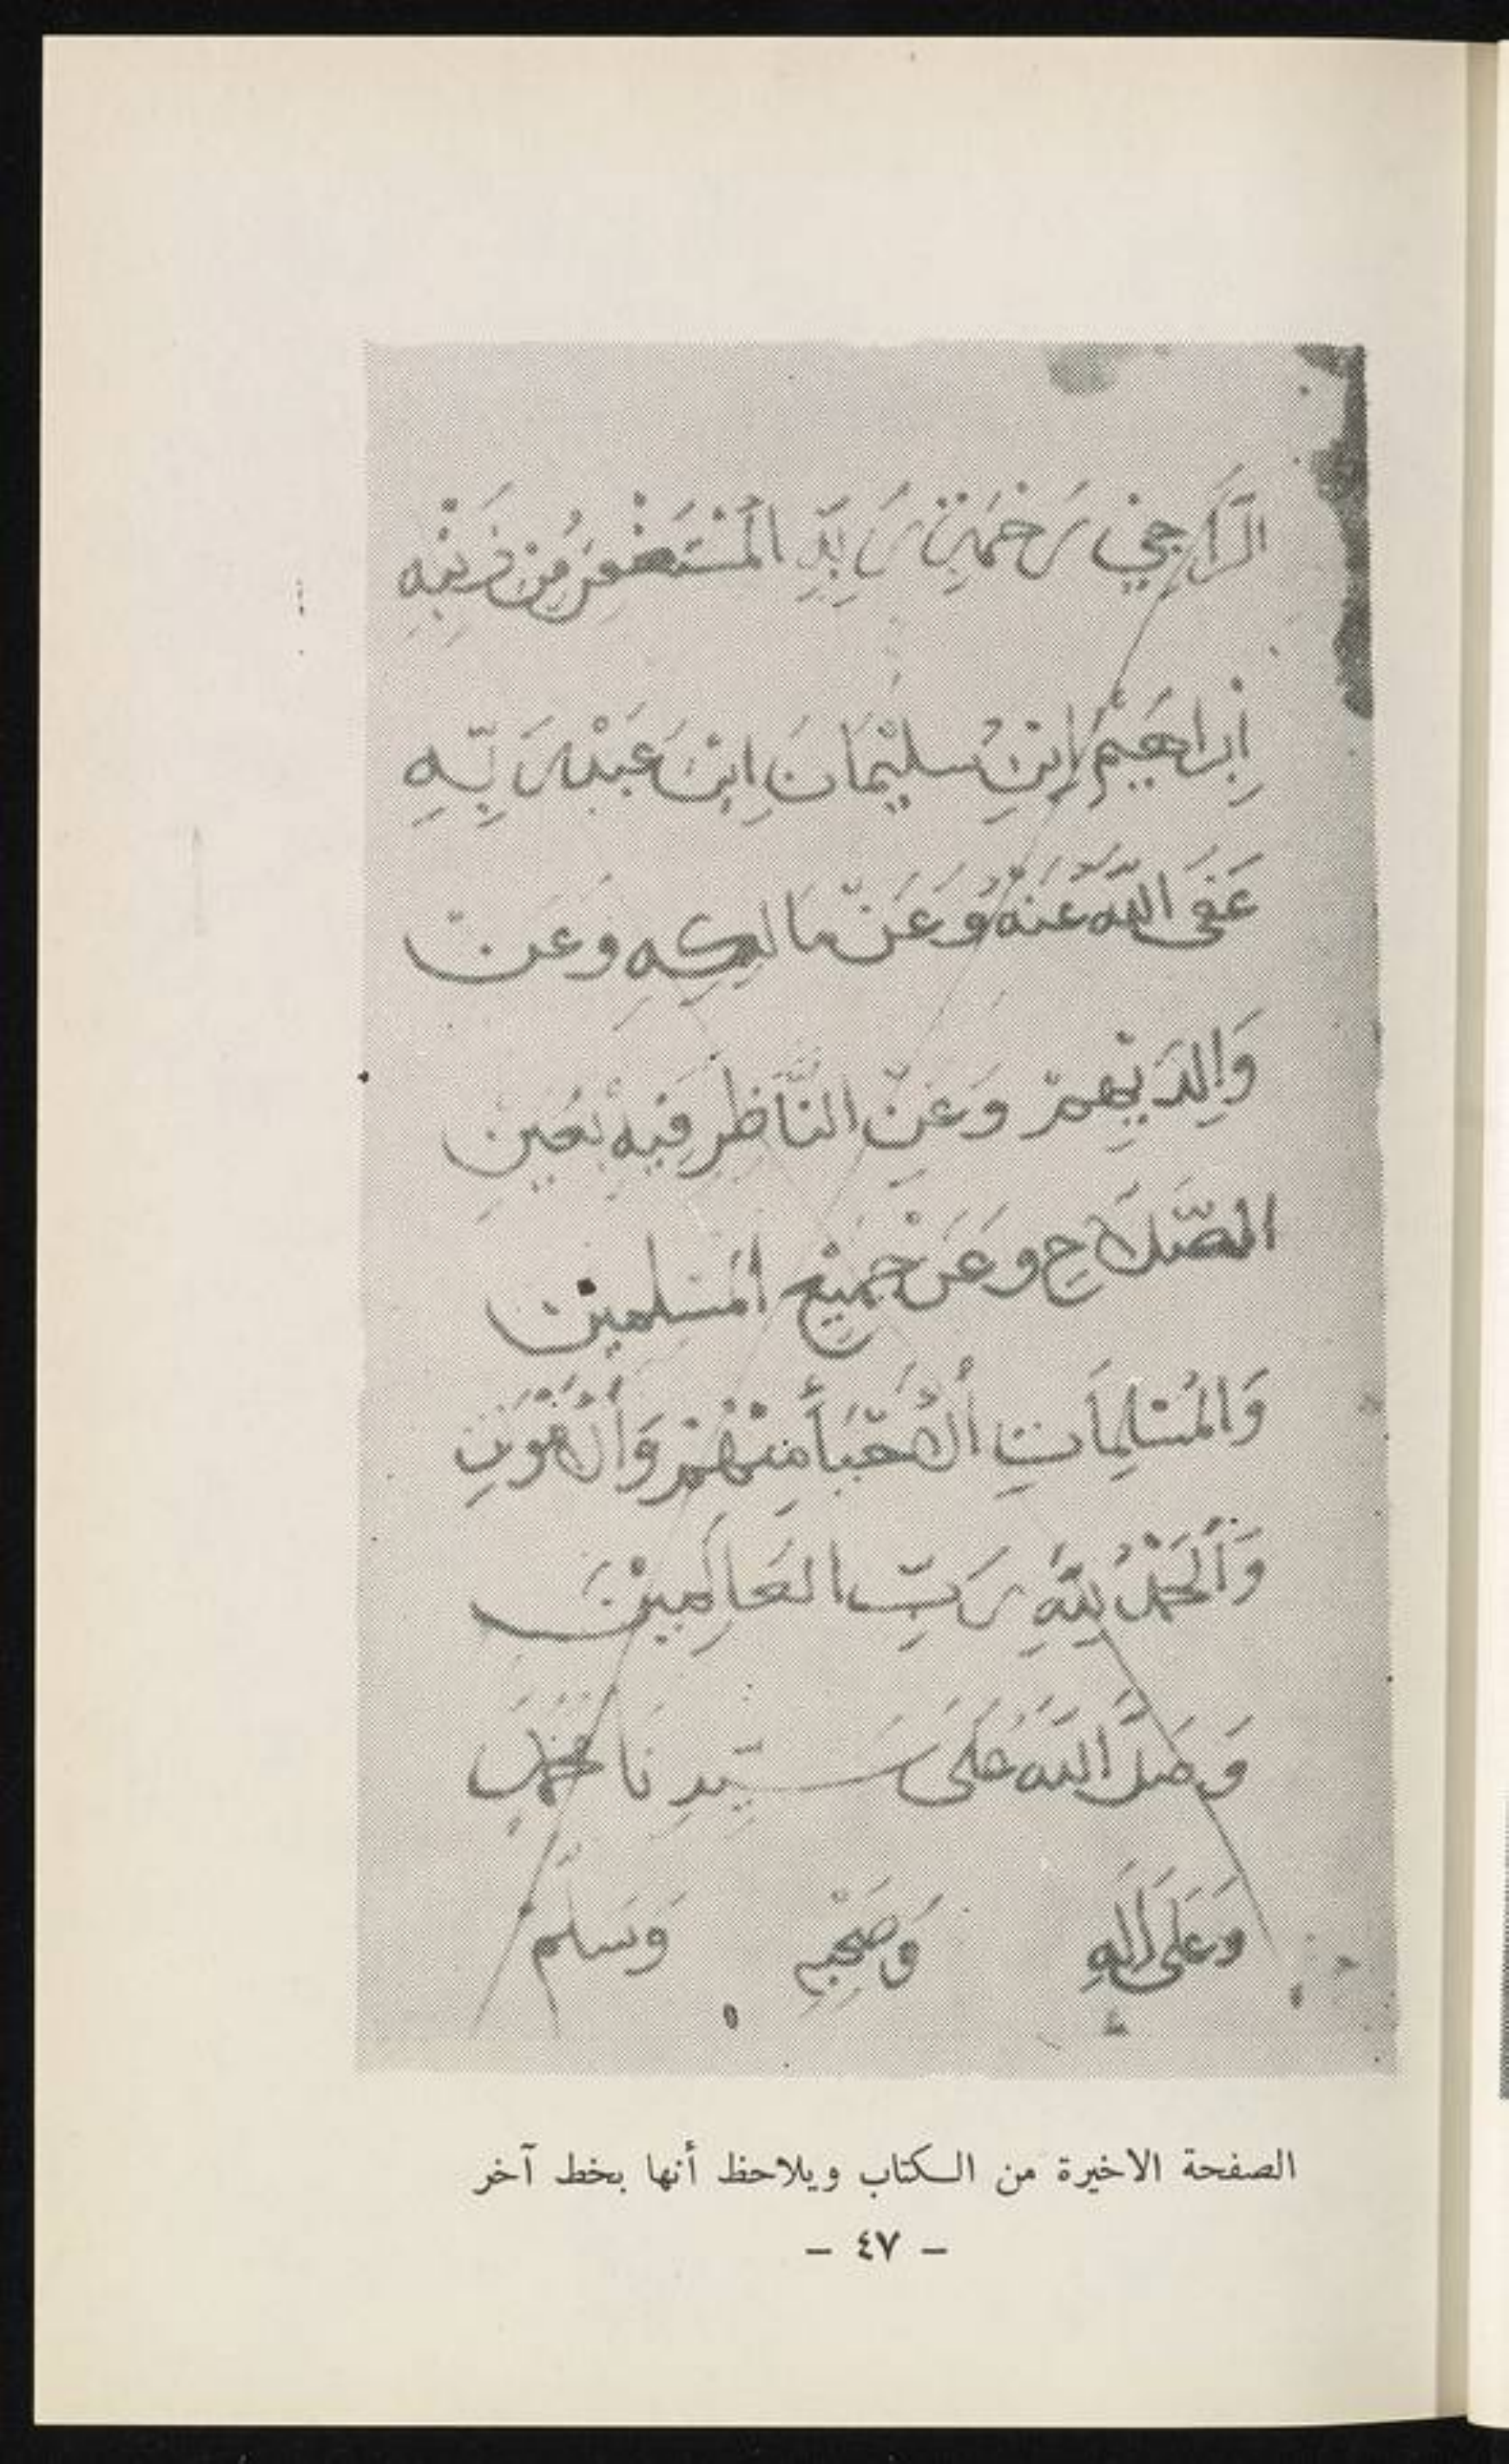 الرَّاجِي رَحْمَتِ رَبِّهِ الْمُسْتَغْفِر مِنْ ذَنْبِهِ
إِبْراهَيْم ابْنِ سليْمَانَ ابْنَ عَبْد رَبِّهِ
عَفَى اللّهُ عَنْهُ وَعَنْ مَالِكِهِ وَعَنْ
وَالِدَيْهِمْ وَعَنِ النَّاظِرِ فِيهِ بِعَيْنِ
الصَّلَاحِ وَعَنْ جَمِيْعِ الْمُسْلِمِينَ
وَالْمُسْلِمَاتِ أَلأَحْيَا مِنْهُمْ وَأَلأَمْوَاتِ
وَالْحَمْدُ لِلّهِ رَبِّ الْعَالَمِيْنَ
وَصَلَّ اللّهُ عَلَى سَيِّدِنَا مُحَمَّدٍ
وَعَلَى اَلِهِ وَصَحْبِهِ وَسَلَّمَ
الصفحة الاخيرة من الكتاب ويلاحظ أنها بخط آخر
– ٤٧ –